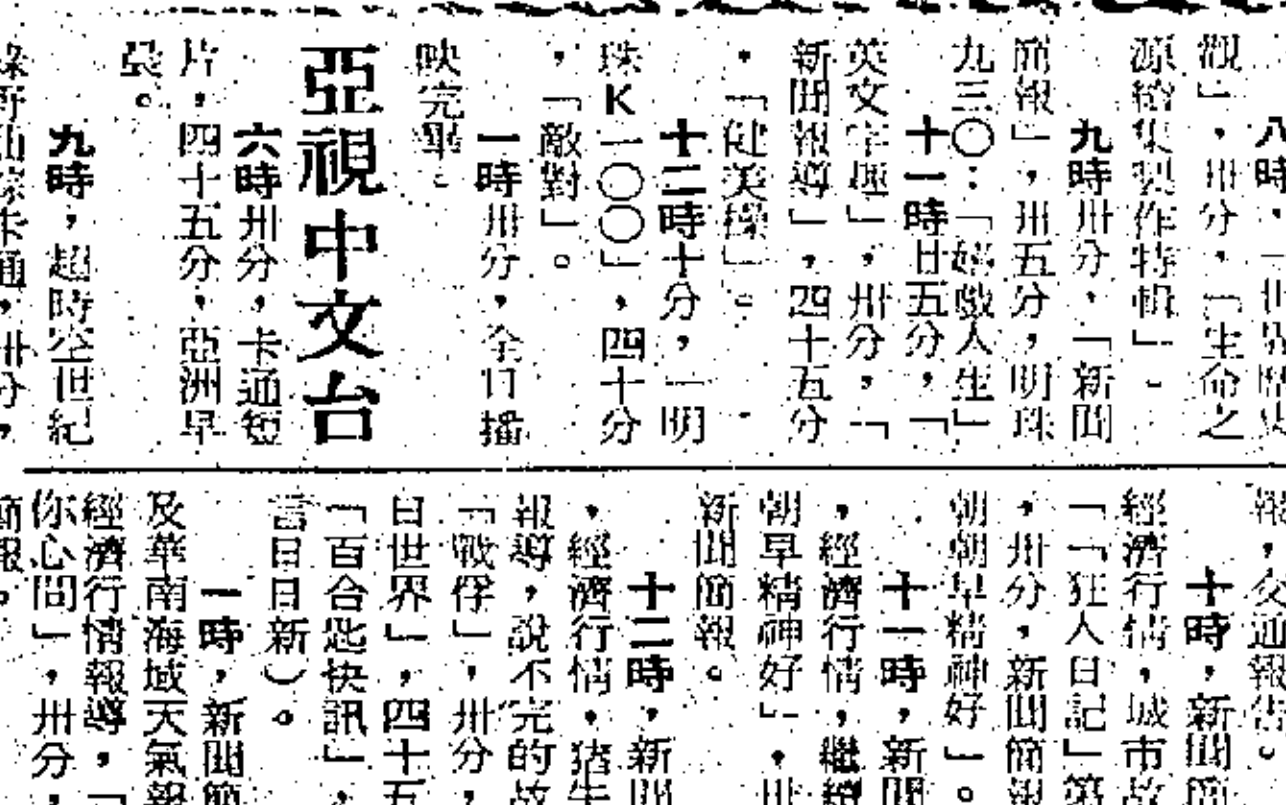 八時,「世界歷史
觀」,卅分,「生命之
源繪集製作特輯」。
九時卅分,「新聞
簡報」,卅五分,明珠
九三〇:「嬉戲人生」
十一時廿五分,「
英文字運」,卅分,「
新聞報導」,四十五分
,「健美操」。
十二時十分,「明
珠K一〇〇」,四十分
,「敵對」。
一時卅分,全日播
映完畢。
亞視中文台
六時卅分,卡通短
片,四十五分,亞洲早
晨。
九時,超時空世紀
綠野仙踪卡通,卅分,
報,交通報告。
十時,新聞簡
經濟行情,城市故
「「狂人日記」第
,卅分,新聞簡報
朝朝早精神好」。
十一時,新聞
,經濟行情,繼續
朝早精神好」,卅
新聞簡報。
十二時,新聞
,經濟行情,豬牛
報導,說不完的故
「戰俘」,卅分,
日世界」,四十五
「百合匙快訊」,
言日日新)。
一時,新聞簡
及華南海域天氣報
經濟行情報導,「
你心間」,卅分,
簡報。